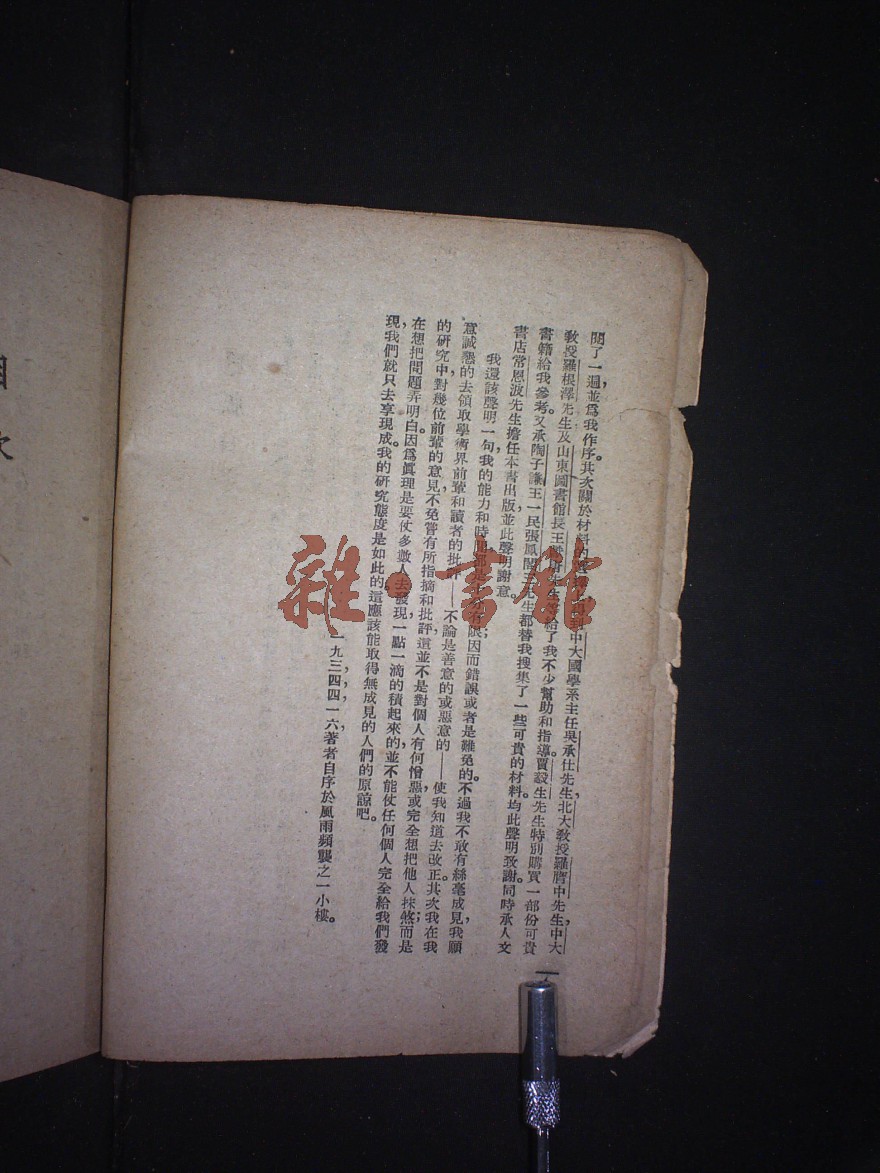 閱了一遍，並爲我作序。其次關於材料的
中大國學系主任吳承仕先生，北大敎授羅膺中先生，中大
敎授羅根澤先生及山東圖書館長王獻唐先生等給了我不少幫助和指導。賈㲄生先生特別購買一部份可貴
書籍給我參考。又承陶子謙王一民張鳳閣三先生都替我搜集了一些可貴的材料。均此聲明致謝。同時承人文
書店常恩波先生擔任本書出版，並此聲明謝意。
我還該聲明一句，我的能力和時間都是十分有限；因而錯誤或者是難免的。不過我不敢有絲毫成見，我願
意誠懇的去領取學術界前輩和讀者的批評——不論是善意的或惡意的——使我知道去改正。其次我在我
的研究中，對幾位前輩的意見，不免嘗有所指摘和批評，這並不是對個人有何憎惡，或完全想把他人抹煞；而是
在想把問題弄明白。因爲眞理是要仗多數人去發現一點一滴的積起來的，並不能仗任何個人完全給我們發
現，我們就只去享現成。我的研究態度是如此的，這應該能取得無成見的人們的原諒吧。
一九三四，四，一六，著者自序於風雨頻襲之一小樓。
雜·書館
次